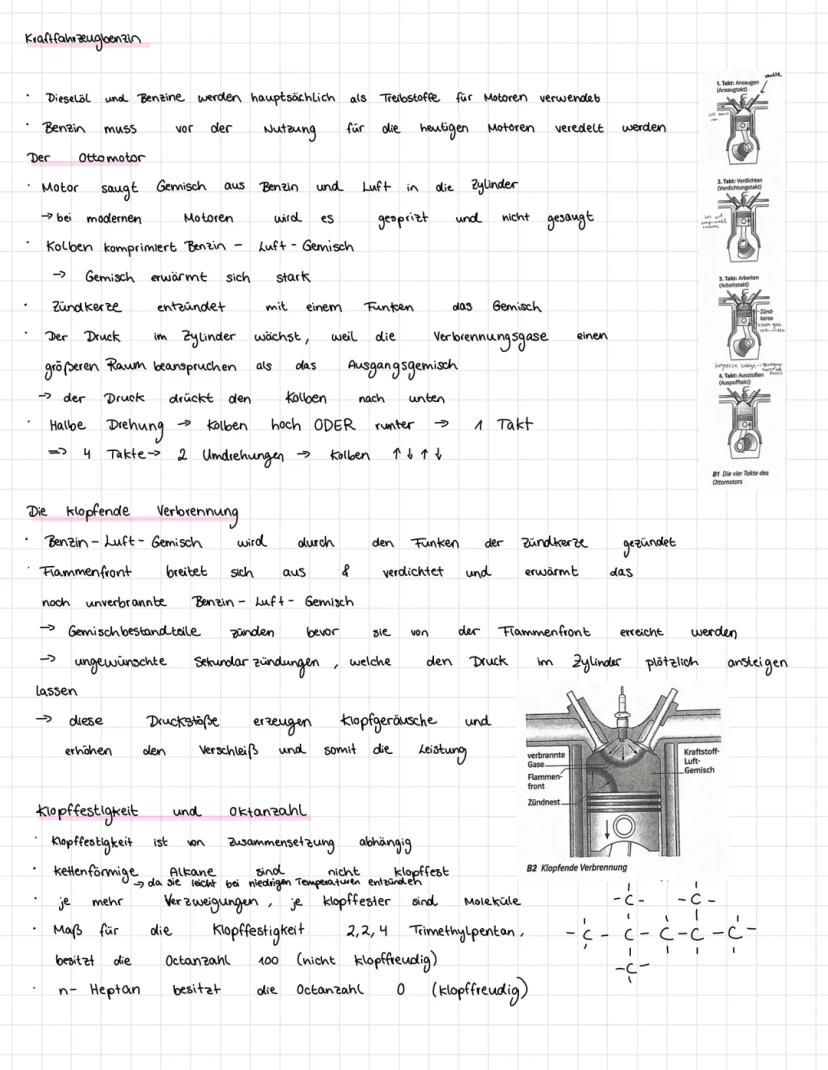 Kraftfahrzeugbenzin
· Dieselöl und Benzine werden hauptsächlich als Treibstoffe für Motoren verwendet
· Benzin muss vor der Nutzung für die heutigen Motoren veredelt werden
Der Ottomotor
· Motor saugt Gemisch aus Benzin und Luft in die Zylinder
→ bei modernen Motoren wird es gesprizt und nicht gesaugt
· Kolben komprimiert Benzin - Luft - Gemisch
→ Gemisch erwärmt sich stark
· Zündkerze entzündet mit einem Funken das Gemisch
· Der Druck im Zylinder wächst, weil die Verbrennungsgase einen
größeren Raum beanspruchen als das Ausgangsgemisch
→ der Druck drückt den Kolben nach unten
· Halbe Drehung → Kolben hoch ODER runter → 1 Takt
=> 4 Takte → 2 Umdrehungen → Kolben ↑↓↑↓
1. Takt: Ansaugen
(Ansaugtakt)
Ventile
2. Takt: Verdichten
(Verdichtungstakt)
3. Takt: Arbeiten
(Arbeitstakt)
Zünd-
kerze
4. Takt: Ausstoßen
(Auspufftakt)
B1 Die vier Takte des
Ottomotors
Die klopfende Verbrennung
· Benzin - Luft - Gemisch wird durch den Funken der Zündkerze gezündet
· Flammenfront breitet sich aus & verdichtet und erwärmt das
noch unverbrannte Benzin - Luft - Gemisch
→ Gemischbestandteile zünden bevor sie von der Flammenfront erreicht werden
→ ungewünschte Sekundarzündungen, welche den Druck im Zylinder plötzlich ansteigen
lassen
→ diese Druckstöße erzeugen Klopfgeräusche und
erhöhen den Verschleiß und somit die Leistung
verbrannte
Gase
Flammen-
front
Zündnest
Kraftstoff-
Luft-
Gemisch
B2 Klopfende Verbrennung
Klopffestigkeit und Oktanzahl
· Klopffestigkeit ist von Zusammensetzung abhängig
· kettenförmige Alkane sind nicht klopffest
→ da sie leicht bei niedrigen Temperaturen entzünden
· je mehr Verzweigungen, je klopffester sind Moleküle
· Maß für die Klopffestigkeit 2,2,4 Trimethylpentan,
besitzt die Octanzahl 100 (nicht klopffreudig)
· n- Heptan besitzt die Octanzahl 0 (klopffreudig)
-C- -C-
-C-C-C-C-C-
-C-